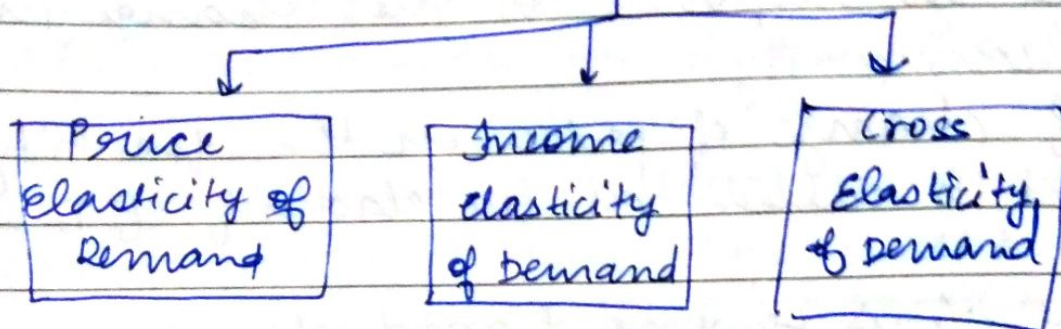 Price
Elasticity of
Demand
Income
elasticity
of Demand
Cross
Elasticity
of Demand